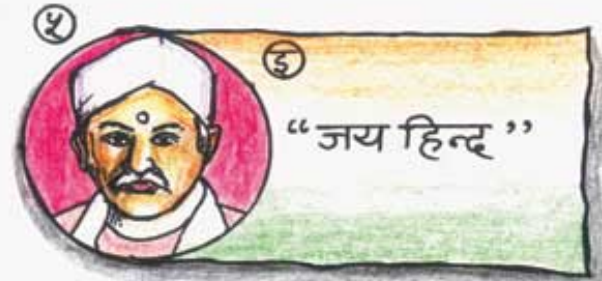 ५
इ
“जय हिन्द”